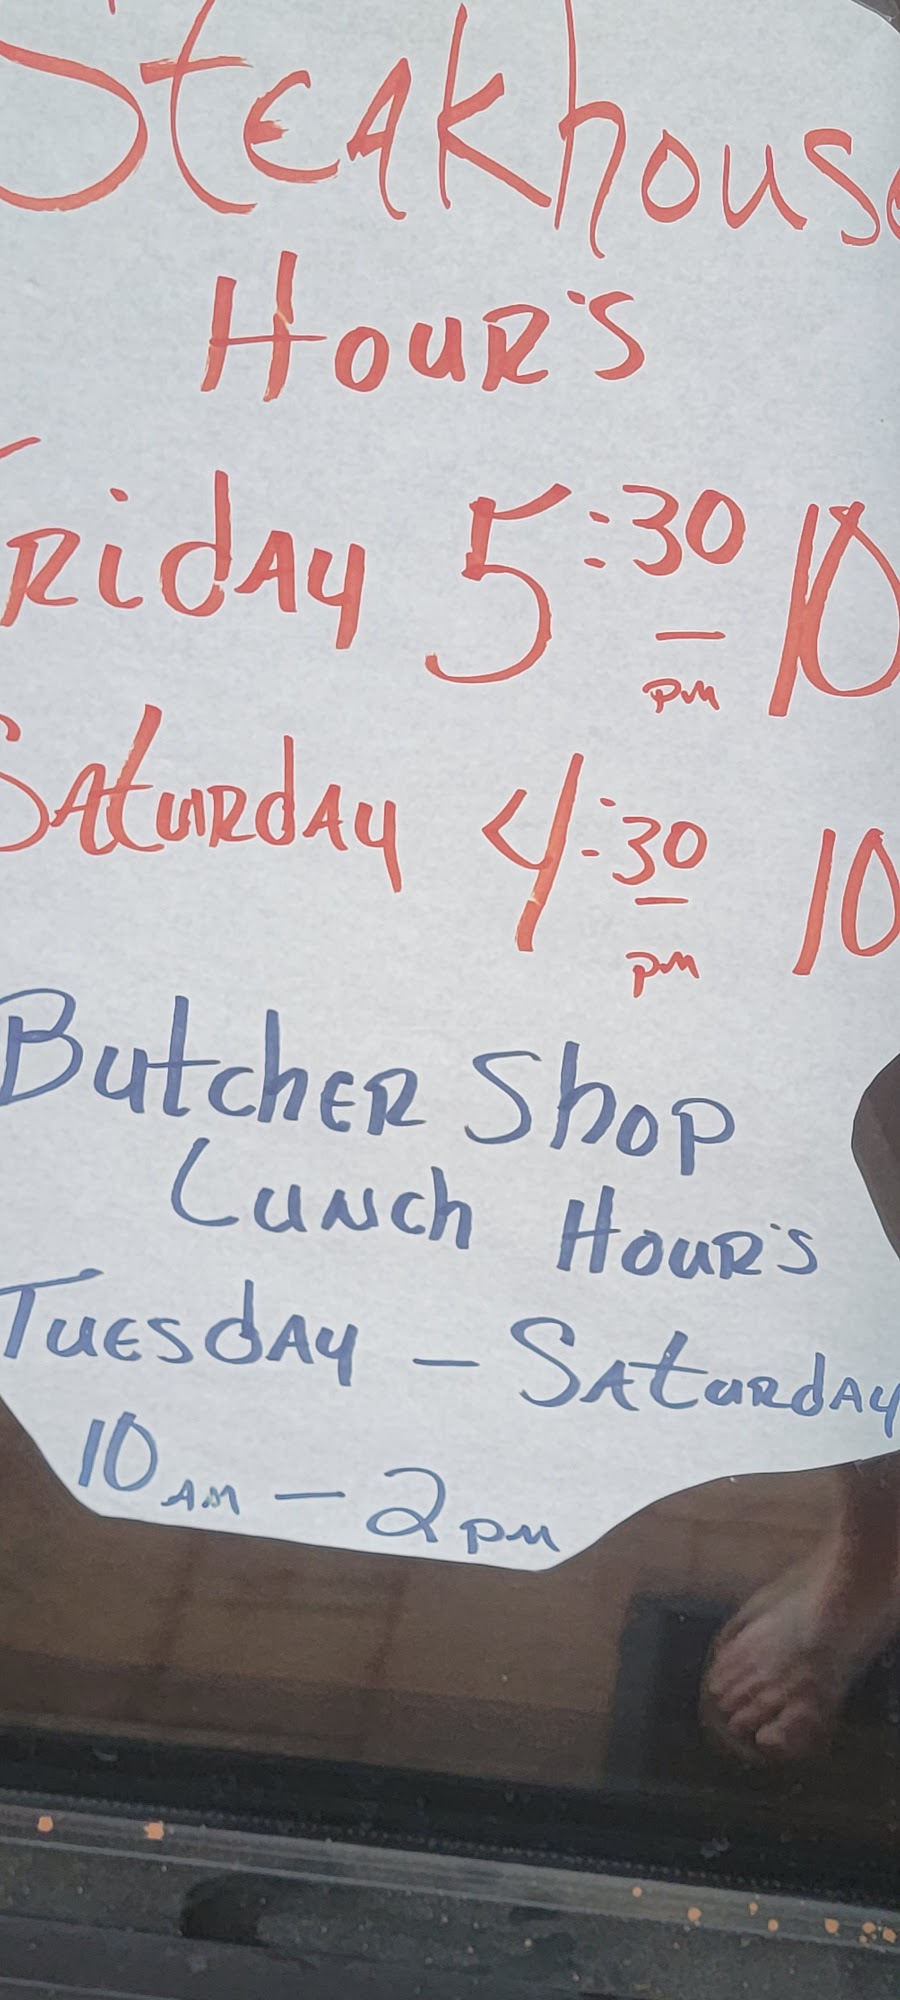 Steakhouse
Hour's
Friday 5:30 pm 10
Saturday 4:30 pm 10
Butcher Shop
Lunch Hour's
Tuesday - Saturday
10 AM - 2 pm